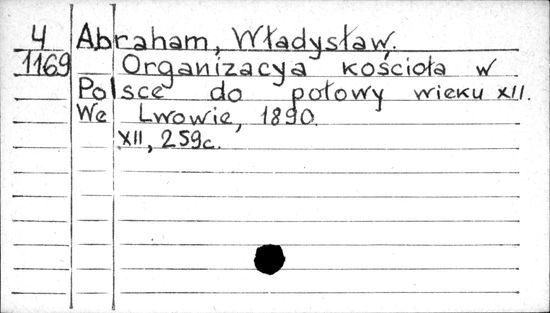 4 Abraham, Władysław.
1169 Organizacya kościoła w
Polsce do połowy wieku XII.
We Lwowie, 1890.
XII, 259c.